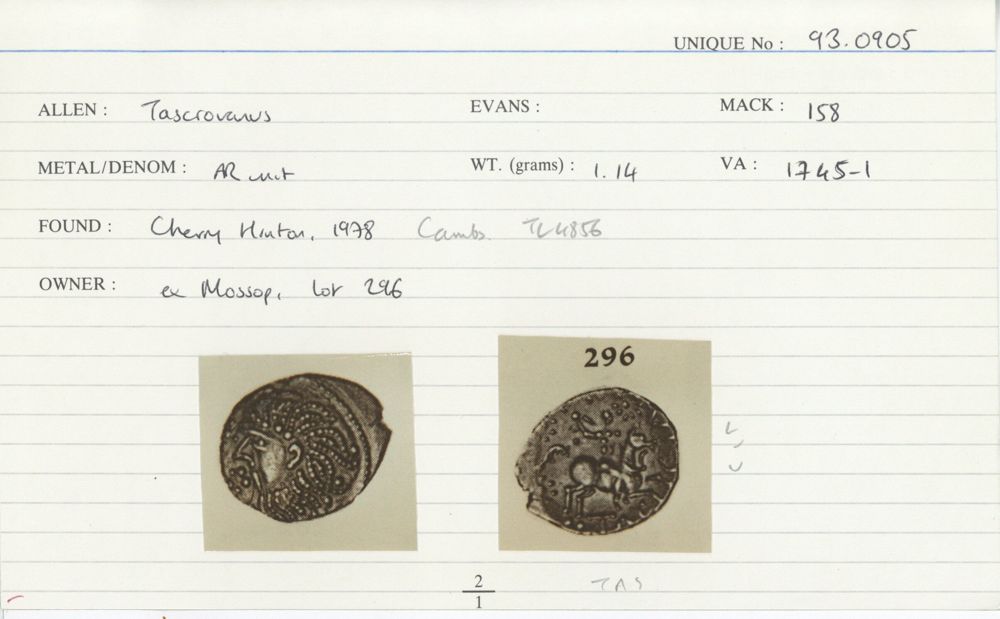 UNIQUE No : 93.0905
ALLEN : Tascrovanus EVANS : MACK : 158
METAL/DENOM : AR unit WT. (grams) : 1.14 VA : 1745-1
FOUND : Cherry Hinton, 1978 Cambs. TL4856
OWNER : ex Mossop, lot 296
296
2
1
TAS